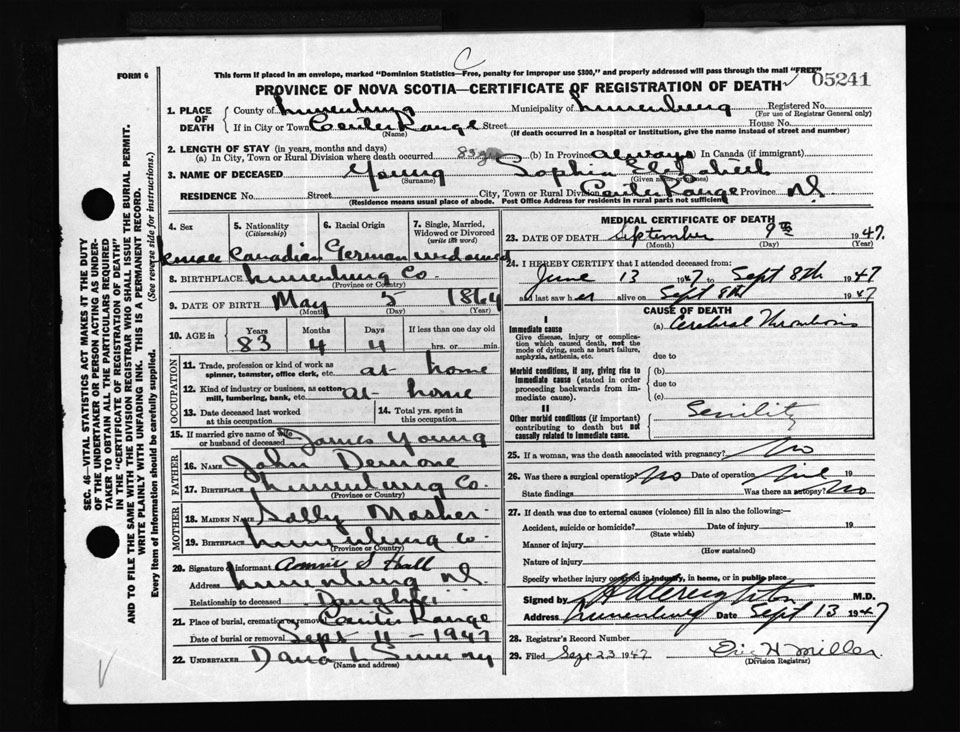 C
FORM 6
This form if placed in an envelope, marked "Dominion Statistics—Free, penalty for improper use $300," and properly addressed will pass through the mail "FREE"
05241
PROVINCE OF NOVA SCOTIA—CERTIFICATE OF REGISTRATION OF DEATH
1. PLACE OF DEATH { County of Lunenburg Municipality of Lunenburg Registered No.
(For use of Registrar General only)
If in City or Town Center Range Street House No.
(Name) (If death occurred in a hospital or institution, give the name instead of street and number)
2. LENGTH OF STAY (in years, months and days)
(a) In City, Town or Rural Division where death occurred 83 (b) In Province always In Canada (if immigrant)
3. NAME OF DECEASED Young Sophia Elizabeth
(Surname) (Given name or names)
RESIDENCE No. Street City, Town or Rural Division Center Range Province N.S.
(Residence means usual place of abode. Post Office Address for residents in rural parts not sufficient)
4. Sex 5. Nationality (Citizenship) 6. Racial Origin 7. Single, Married, Widowed or Divorced (write the word)
Female Canadian German widowed
8. BIRTHPLACE Lunenburg Co
(Province or Country)
9. DATE OF BIRTH May 5 1864
(Month) (Day) (Year)
10. AGE in Years Months Days If less than one day old
83 4 4 hrs. or min.
OCCUPATION
11. Trade, profession or kind of work as spinner, teamster, office clerk, etc. at home
12. Kind of industry or business, as cotton mill, lumbering, bank, etc. at home
13. Date deceased last worked at this occupation 14. Total yrs. spent in this occupation
15. If married give name of wife or husband of deceased James Young
FATHER
16. NAME John Demone
17. BIRTHPLACE Lunenburg Co.
(Province or Country)
MOTHER
18. MAIDEN NAME Sally Mosher
19. BIRTHPLACE Lunenburg Co.
(Province or Country)
20. Signature of informant Annie S Hall
Address Lunenburg N.S.
Relationship to deceased Daughter
21. Place of burial, cremation or removal Center Range
Date of burial or removal Sept 11 - 1947
22. UNDERTAKER
(Name and address)
MEDICAL CERTIFICATE OF DEATH
23. DATE OF DEATH September 9th 1947
(Month) (Day) (Year)
24. I HEREBY CERTIFY that I attended deceased from:
June 13 1947 to Sept 8th 1947
and last saw her alive on Sept 8th 1947
CAUSE OF DEATH
I
Immediate cause (a) Cerebral Thrombosis
Give disease, injury or complication which caused death, not the mode of dying, such as heart failure, asphyxia, asthenia, etc. due to
Morbid conditions, if any, giving rise to immediate cause (stated in order proceeding backwards from immediate cause). (b)
due to
(c)
II
Other morbid conditions (if important) contributing to death but not causally related to immediate cause. Senility
25. If a woman, was the death associated with pregnancy? No
26. Was there a surgical operation? No Date of operation Nil 19
State findings Was there an autopsy? No
27. If death was due to external causes (violence) fill in also the following:—
Accident, suicide or homicide? Date of injury 19
(State which)
Manner of injury
(How sustained)
Nature of injury
Specify whether injury occurred in industry, in home, or in public place
Signed by M.D.
Address Lunenburg Date Sept 13 1947
28. Registrar's Record Number
29. Filed Sept 23 1947 Eric H. Miller
(Division Registrar)
SEC. 46—VITAL STATISTICS ACT MAKES IT THE DUTY
OF THE UNDERTAKER OR PERSON ACTING AS UNDERTAKER
TO OBTAIN ALL THE PARTICULARS REQUIRED
IN THE "CERTIFICATE OF REGISTRATION OF DEATH"
AND TO FILE THE SAME WITH THE DIVISION REGISTRAR WHO SHALL ISSUE THE BURIAL PERMIT.
WRITE PLAINLY WITH UNFADING INK. THIS IS A PERMANENT RECORD.
Every item of information should be carefully supplied. (See reverse side for instructions.)